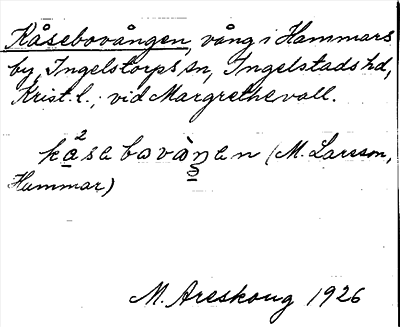 Kåsebovången, vång i Hammars
by, Ingelstorps sn, Ingelstads hd,
Krist. l., vid Margrethevall.
ka²sabovàŋən (M. Larsson,
Hammar)
M. Areskoug 1926